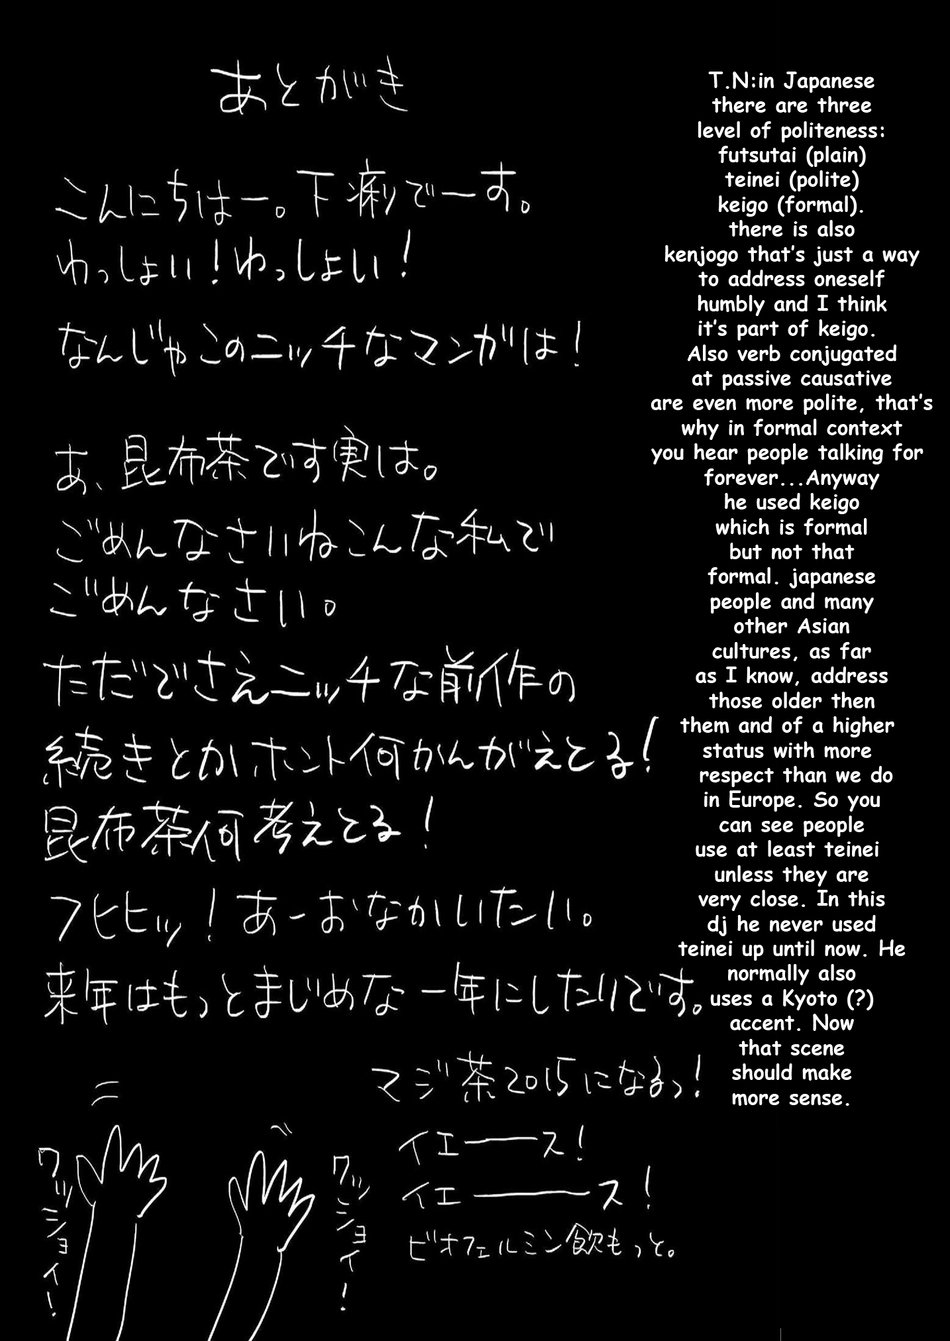 あとがき
こんにちはー。下痢でーす。
わっしょい!わっしょい!
なんじゃこのニッチなマンガは!
あ、昆布茶です実は。
ごめんなさいねこんな私で
ごめんなさい。
ただでさえニッチな前作の
続きとかホント何かんがえてる!
昆布茶何考えてる!
フヒヒッ!あーおなかいたい。
来年はもっとまじめな一年にしたりです。
マジ茶2015になるっ!
イエーース!
イエーース!
ビオフェルミン飲もっと。
ワッショイ!
ワッショイ!
T.N:in Japanese
there are three
level of politeness:
futsutai (plain)
teinei (polite)
keigo (formal).
there is also
kenjogo that's just a way
to address oneself
humbly and I think
it's part of keigo.
Also verb conjugated
at passive causative
are even more polite, that's
why in formal context
you hear people talking for
forever...Anyway
he used keigo
which is formal
but not that
formal. japanese
people and many
other Asian
cultures, as far
as I know, address
those older then
them and of a higher
status with more
respect than we do
in Europe. So you
can see people
use at least teinei
unless they are
very close. In this
dj he never used
teinei up until now. He
normally also
uses a Kyoto (?)
accent. Now
that scene
should make
more sense.